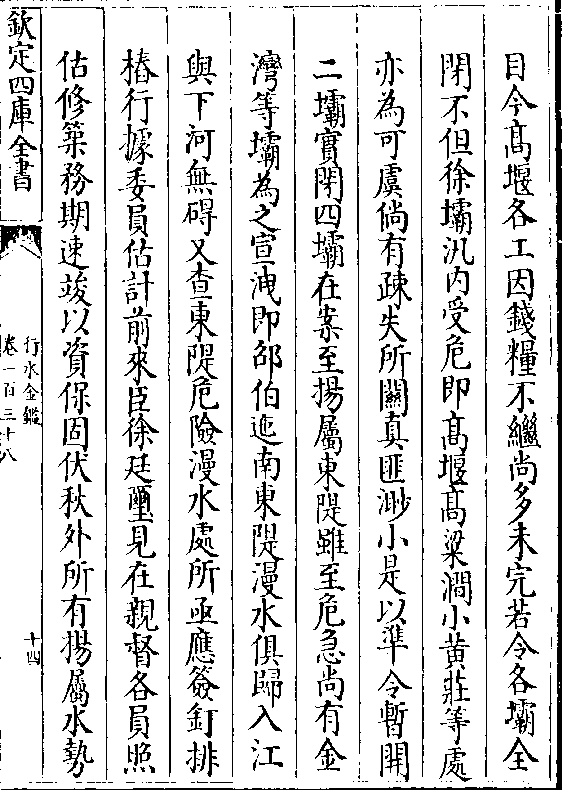 目今髙堰各工因錢糧不繼尚多未完若令各壩全
閉不但徐壩汛内受危即髙堰髙粱澗小黄莊等處
亦為可虞倘有疎失所闗真匪渺小是以準令暫開
二壩實閉四壩在案至揚屬東隄雖至危急尚有金
灣等壩為之宣洩即邵伯迤南東隄漫水俱歸入江
與下河無碍又查東隄危險漫水處所亟應簽釘排
樁行據委員估計前來臣徐廷璽見在親督各員照
估修築務期速竣以資保固伏秋外所有揚屬水勢
欽定四庫全書
行水金鑑
卷一百三十八
十四